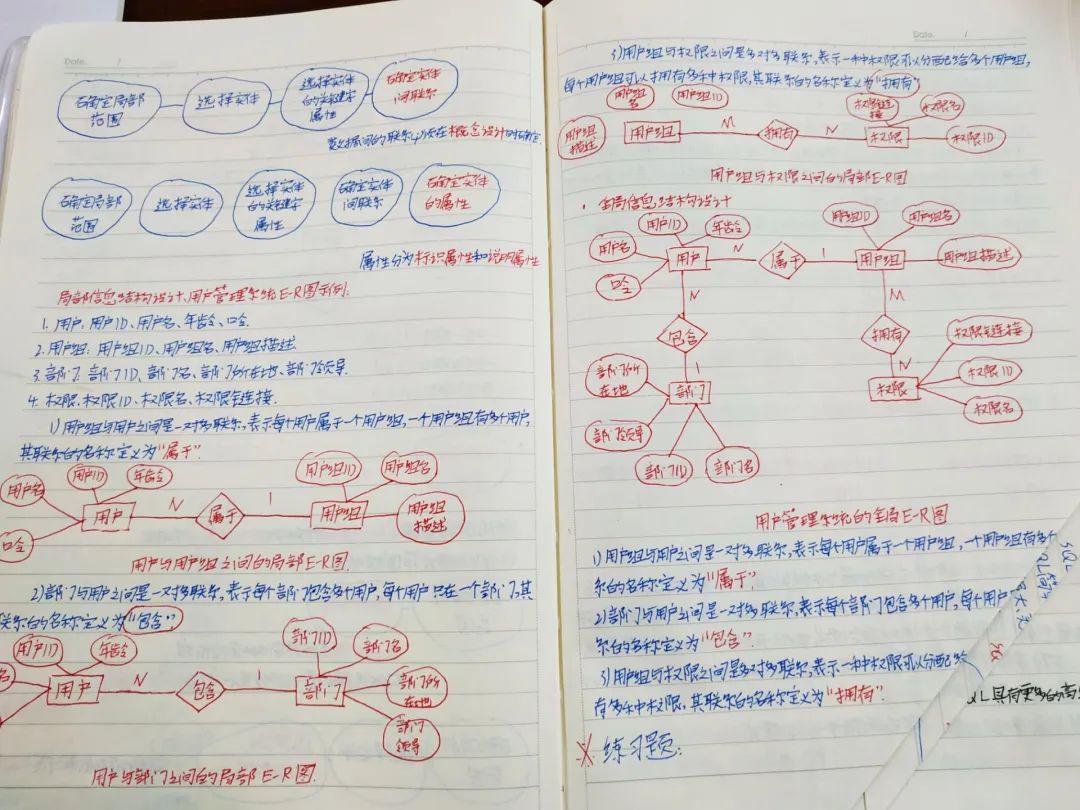 Date. /
确定局部范围
选择实体
选择实体的关键字属性
确定实体间联系
数据间的联系必须在概念设计时确定.
确定局部范围
选择实体
选择实体的关键字属性
确定实体间联系
确定实体的属性
属性分为标识属性和说明属性
局部信息结构设计、用户管理系统E-R图示例:
1. 用户: 用户ID、用户名、年龄、口令.
2. 用户组: 用户组ID、用户组名、用户组描述
3. 部门: 部门ID、部门名、部门所在地、部门领导.
4. 权限: 权限ID、权限名、权限链连接.
1)用户组与用户之间是一对多联系,表示每个用户属于一个用户组,一个用户组有多个用户,
其联系的名称定义为"属于".
用户名
用户ID
年龄
用户组ID
用户组名
口令
用户
N
属于
1
用户组
用户组描述
用户与用户组之间的局部E-R图.
2)部门与用户之间是一对多联系,表示每个部门包含多个用户,每个用户只在一个部门,其
联系的名称定义为"包含".
名
用户ID
年龄
部门ID
部门名
用户
N
包含
1
部门
部门所在地
部门领导
用户与部门之间的局部E-R图.
Date. /
3)用户组与权限之间是多对多联系,表示一种权限可以分配给多个用户组,
每个用户组可以拥有多种权限,其联系的名称定义为"拥有"
用户组名
用户组ID
权限链接
权限名
用户组描述
用户组
M
拥有
N
权限
权限ID
用户组与权限之间的局部E-R图
· 全局信息结构设计
用户ID
年龄
用户组ID
用户组名
用户名
用户
N
属于
1
用户组
用户组描述
口令
N
M
包含
拥有
1
N
部门所在地
部门
权限
权限链连接
权限ID
权限名
部门领导
部门ID
部门名
用户管理系统的全局E-R图
1)用户组与用户之间是一对多联系,表示每个用户属于一个用户组,一个用户组有多个
系的名称定义为"属于".
2)部门与用户之间是一对多联系,表示每个部门包含多个用户,每个用户
系的名称定义为"包含".
3)用户组与权限之间是多对多联系,表示一种权限可以分配给
有多种权限,其联系的名称定义为"拥有".
练习题:
SQL
QL具有更多的高